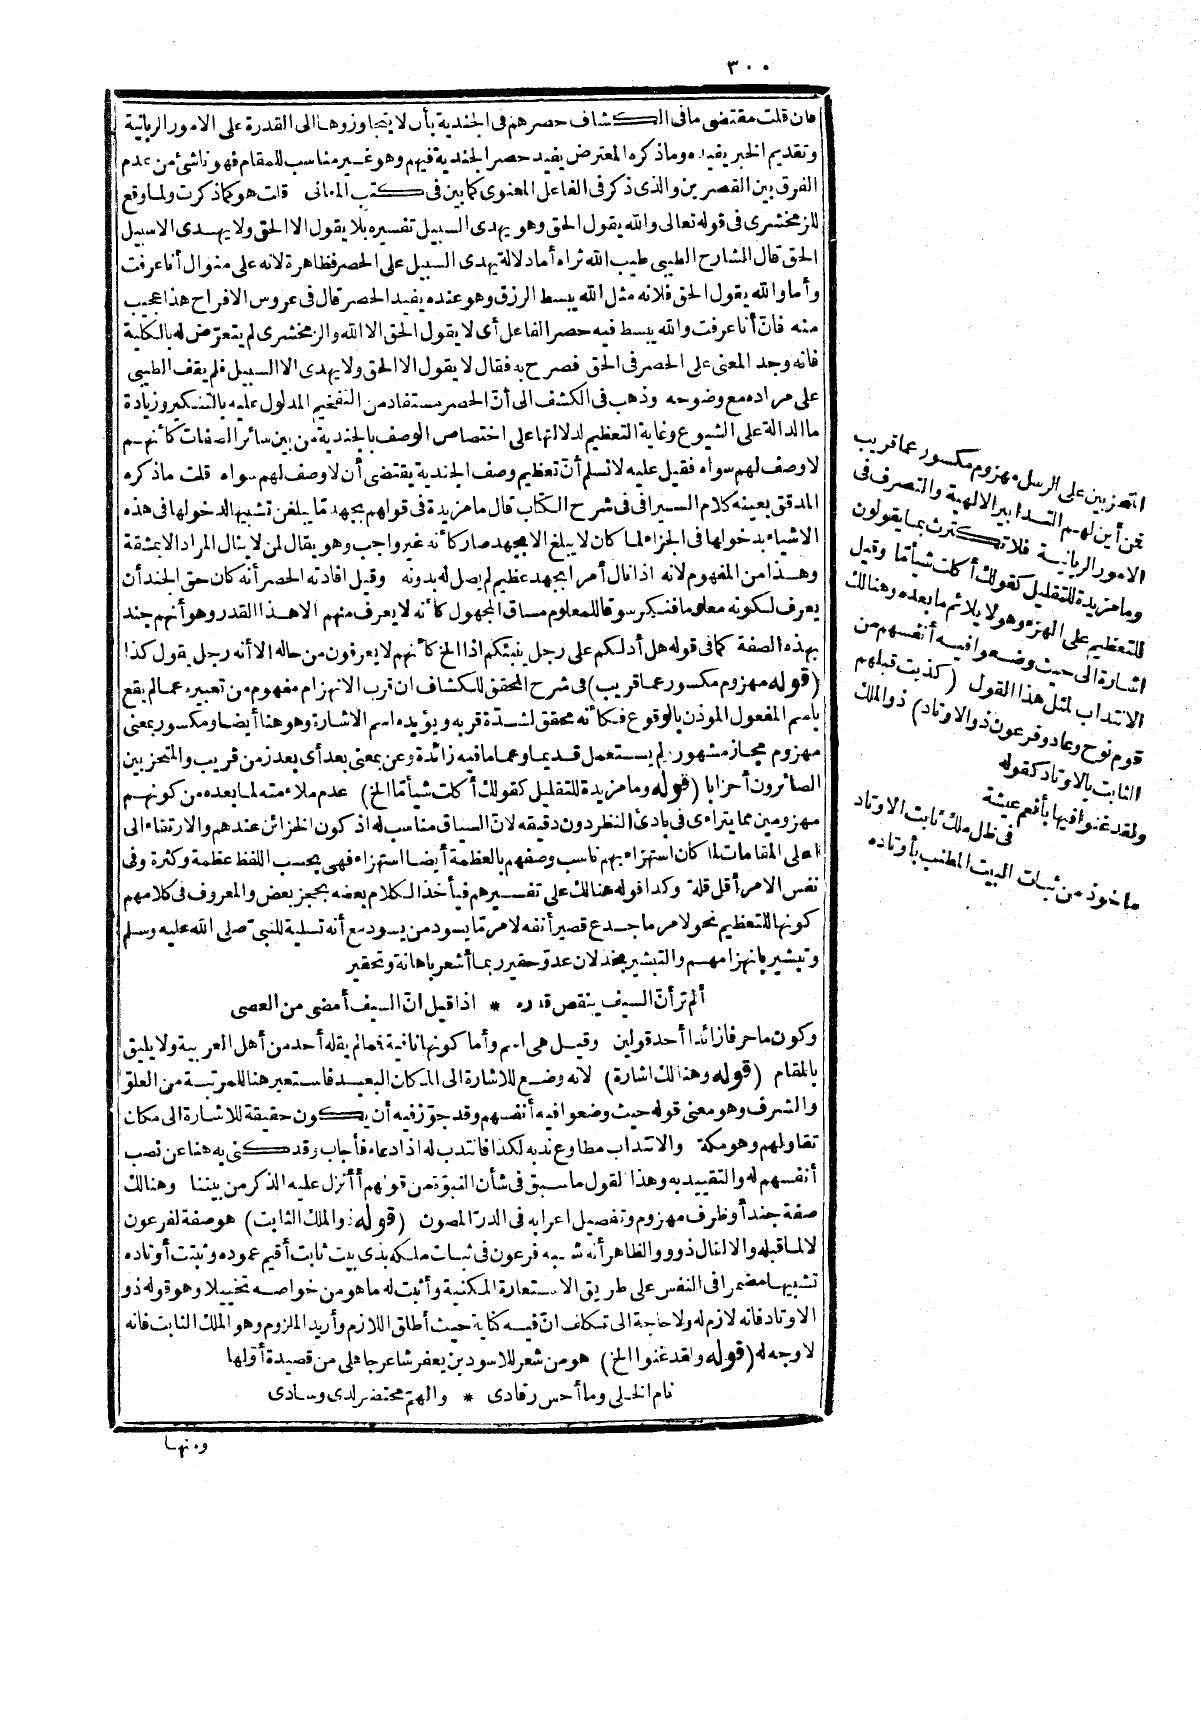 ٣٠٠
فان قلت مقتضى ما فى الكشاف حصرهم فى الجندية بأن لا يتجاوزوها الى القدرة على الامور الربانية
وتقديم الخبر يفيده وما ذكره المعترض يفيد حصر الجندية فيهم وهو غير مناسب للمقام فهو ناشئ من عدم
الفرق بين القصرين والذى ذكر فى الفاعل المعنوى كما بين فى كتب المعانى قلت هو كما ذكرت ولما وقع
للزمخشرى فى قوله تعالى والله يقول الحق وهو يهدى السبيل تفسيره بلا يقول الا الحق ولا يهدى الا سبيل
الحق قال الشارح الطيبى طيب الله ثراه أما دلالة يهدى السبيل على الحصر فظاهرة لانه على منوال أنا عرفت
وأما والله يقول الحق فلانه مثل الله يبسط الرزق وهو عنده يفيد الحصر قال فى عروس الافراح هذا عجيب
منه فانّ أنا عرفت والله يبسط فيه حصر الفاعل أى لا يقول الحق الا الله والزمخشرى لم يتعرّض له بالكلية
فانه وجد المعنى على الحصر فى الحق فصرح به فقال لا يقول الا الحق ولا يهدى الا السبيل فلم يقف الطيبى
على مراده مع وضوحه وذهب فى الكشف الى أنّ الحصر مستفاد من التفخيم المدلول عليه بالتنكير وزيادة
ما الدالة على الشيوع وغاية التعظيم لدلالتها على اختصاص الوصف بالجندية من بين سائر الصفات كأنهم
لا وصف لهم سواه فقيل عليه لا نسلم أنّ تعظيم وصف الجندية يقتضى أن لا وصف لهم سواه قلت ما ذكره
المدقق بعينه كلام السيرافى فى شرح الكتاب قال ما مزيدة فى قولهم بجهد مّا يبلغن تشبيها لدخولها فى هذه
الاشياء بدخولها فى الجزاء لما كان لا يبلغ الا بجهد صار كأنه غير واجب وهو يقال لمن لا ينال المراد الا بمشقة
وهذا من المفهوم لانه اذا نال أمرا بجهد عظيم لم يصل له بدونه وقيل افادته الحصر أنه كان حق الجند أن
يعرف لكونه معلوما فنكر سوقا للمعلوم مساق المجهول كأنه لا يعرف منهم الا هذا القدر وهو أنهم جند
بهذه الصفة كما فى قوله هل أدلكم على رجل ينبئكم اذا الخ كأنهم لا يعرفون من حاله الا أنه رجل يقول كذا
(قوله مهزوم مكسور عما قريب) فى شرح المحقق للكشاف ان قرب الانهزام مفهوم من تعبيره عما لم يقع
باسم المفعول المؤذن بالوقوع فكأنه محقق لشدّة قربه ويؤيده اسم الاشارة وهو هنا أيضا ومكسور بمعنى
مهزوم مجاز مشهور لم يستعمل قديما وعما ما فيه زائدة وعن بمعنى بعد أى بعد زمن قريب والمتحزبين
الصائرون أحزابا (قوله وما مزيدة للتقليل كقولك أكلت شيأمّا الخ) عدم ملاءمته لما بعده من كونهم
مهزومين مما يتراءى فى بادئ النظر دون دقيقه لانّ السياق مناسب له اذ كون الخزائن عندهم والارتقاء الى
أعلى المقامات لما كان استهزاء بهم ناسب وصفهم بالعظمة أيضا استهزاء فهى بحسب اللفظ عظمة وكثرة وفى
نفس الامر أقل قلة وكذا قوله هنالك على تفسيرهم فيأخذ الكلام بعضه بحجز بعض والمعروف فى كلامهم
كونها للتعظيم نحو لامر ما جدع قصير أنفه لامر مّا يسود من يسود مع أنه تسلية للنبىّ صلى الله عليه وسلم
وتبشير بانهزامهم والتبشير بخذلان عدوّ حقير ربما أشعر باهانة وتحقير
ألم تر أنّ السيف ينقص قدره * اذا قيل انّ السيف أمضى من العصى
وكون ما حرفا زائدا أحد قولين وقيل هى اسم وأما كونها نافية فمما لم يقله أحد من أهل العربية ولا يليق
بالمقام (قوله وهنالك اشارة) لانه وضع للاشارة الى المكان البعيد فاستعير هنا للمرتبة من العلوّ
والشرف وهو معنى قوله حيث وضعوا فيه أنفسهم وقد جوّز فيه أن يكون حقيقة للاشارة الى مكان
تقاولهم وهو مكة والانتداب مطاوع ندبه لكذا فانتدب له اذا دعاه فأجاب وقد كنى به هنا عن نصب
أنفسهم له والتقييد به وهذا القول ما سبق فى شأن النبوّة من قولهم أأنزل عليه الذكر من بيننا وهنالك
صفة جند أو ظرف مهزوم وتفصيل اعرابه فى الدرّ المصون (قوله ذو الملك الثابت) هو صفة لفرعون
لا لما قبله والا لقال ذوو والظاهر أنه شبه فرعون فى ثبات ملكه بذى بيت ثابت أقيم عموده وثبتت أوتاده
تشبيها مضمرا فى النفس على طريق الاستعارة المكنية وأثبت له ما هو من خواصه تخييلا وهو قوله ذو
الاوتاد فانه لازم له ولا حاجة الى تكلف انّ فيه كناية حيث أطلق اللازم وأريد الملزوم وهو الملك الثابت فانه
لا وجه له (قوله ولقد غنوا الخ) هو من شعر للاسود بن يعفر شاعر جاهلى من قصيدة أوّلها
نام الخلى وما أحس رقادى * والهمّ محتضر لدى وسادى
ومنها
المتحزبين على الرسل مهزوم مكسور عما قريب
فمن أين لهم التدابير الالهية والتصرف فى
الامور الربانية فلا تكترث بما يقولون
وما مزيدة للتقليل كقولك أكلت شيأمّا وقيل
للتعظيم على الهزء وهو لا يلائم ما بعده وهنالك
اشارة الى حيث وضعوا فيه أنفسهم من
الانتداب لمثل هذا القول (كذبت قبلهم
قوم نوح وعاد وفرعون ذو الاوتاد) ذو الملك
الثابت بالاوتاد كقوله
ولقد غنوا فيها بأنعم عيشة
فى ظل ملك ثابت الاوتاد
مأخوذ من ثبات البيت المطنب بأوتاده